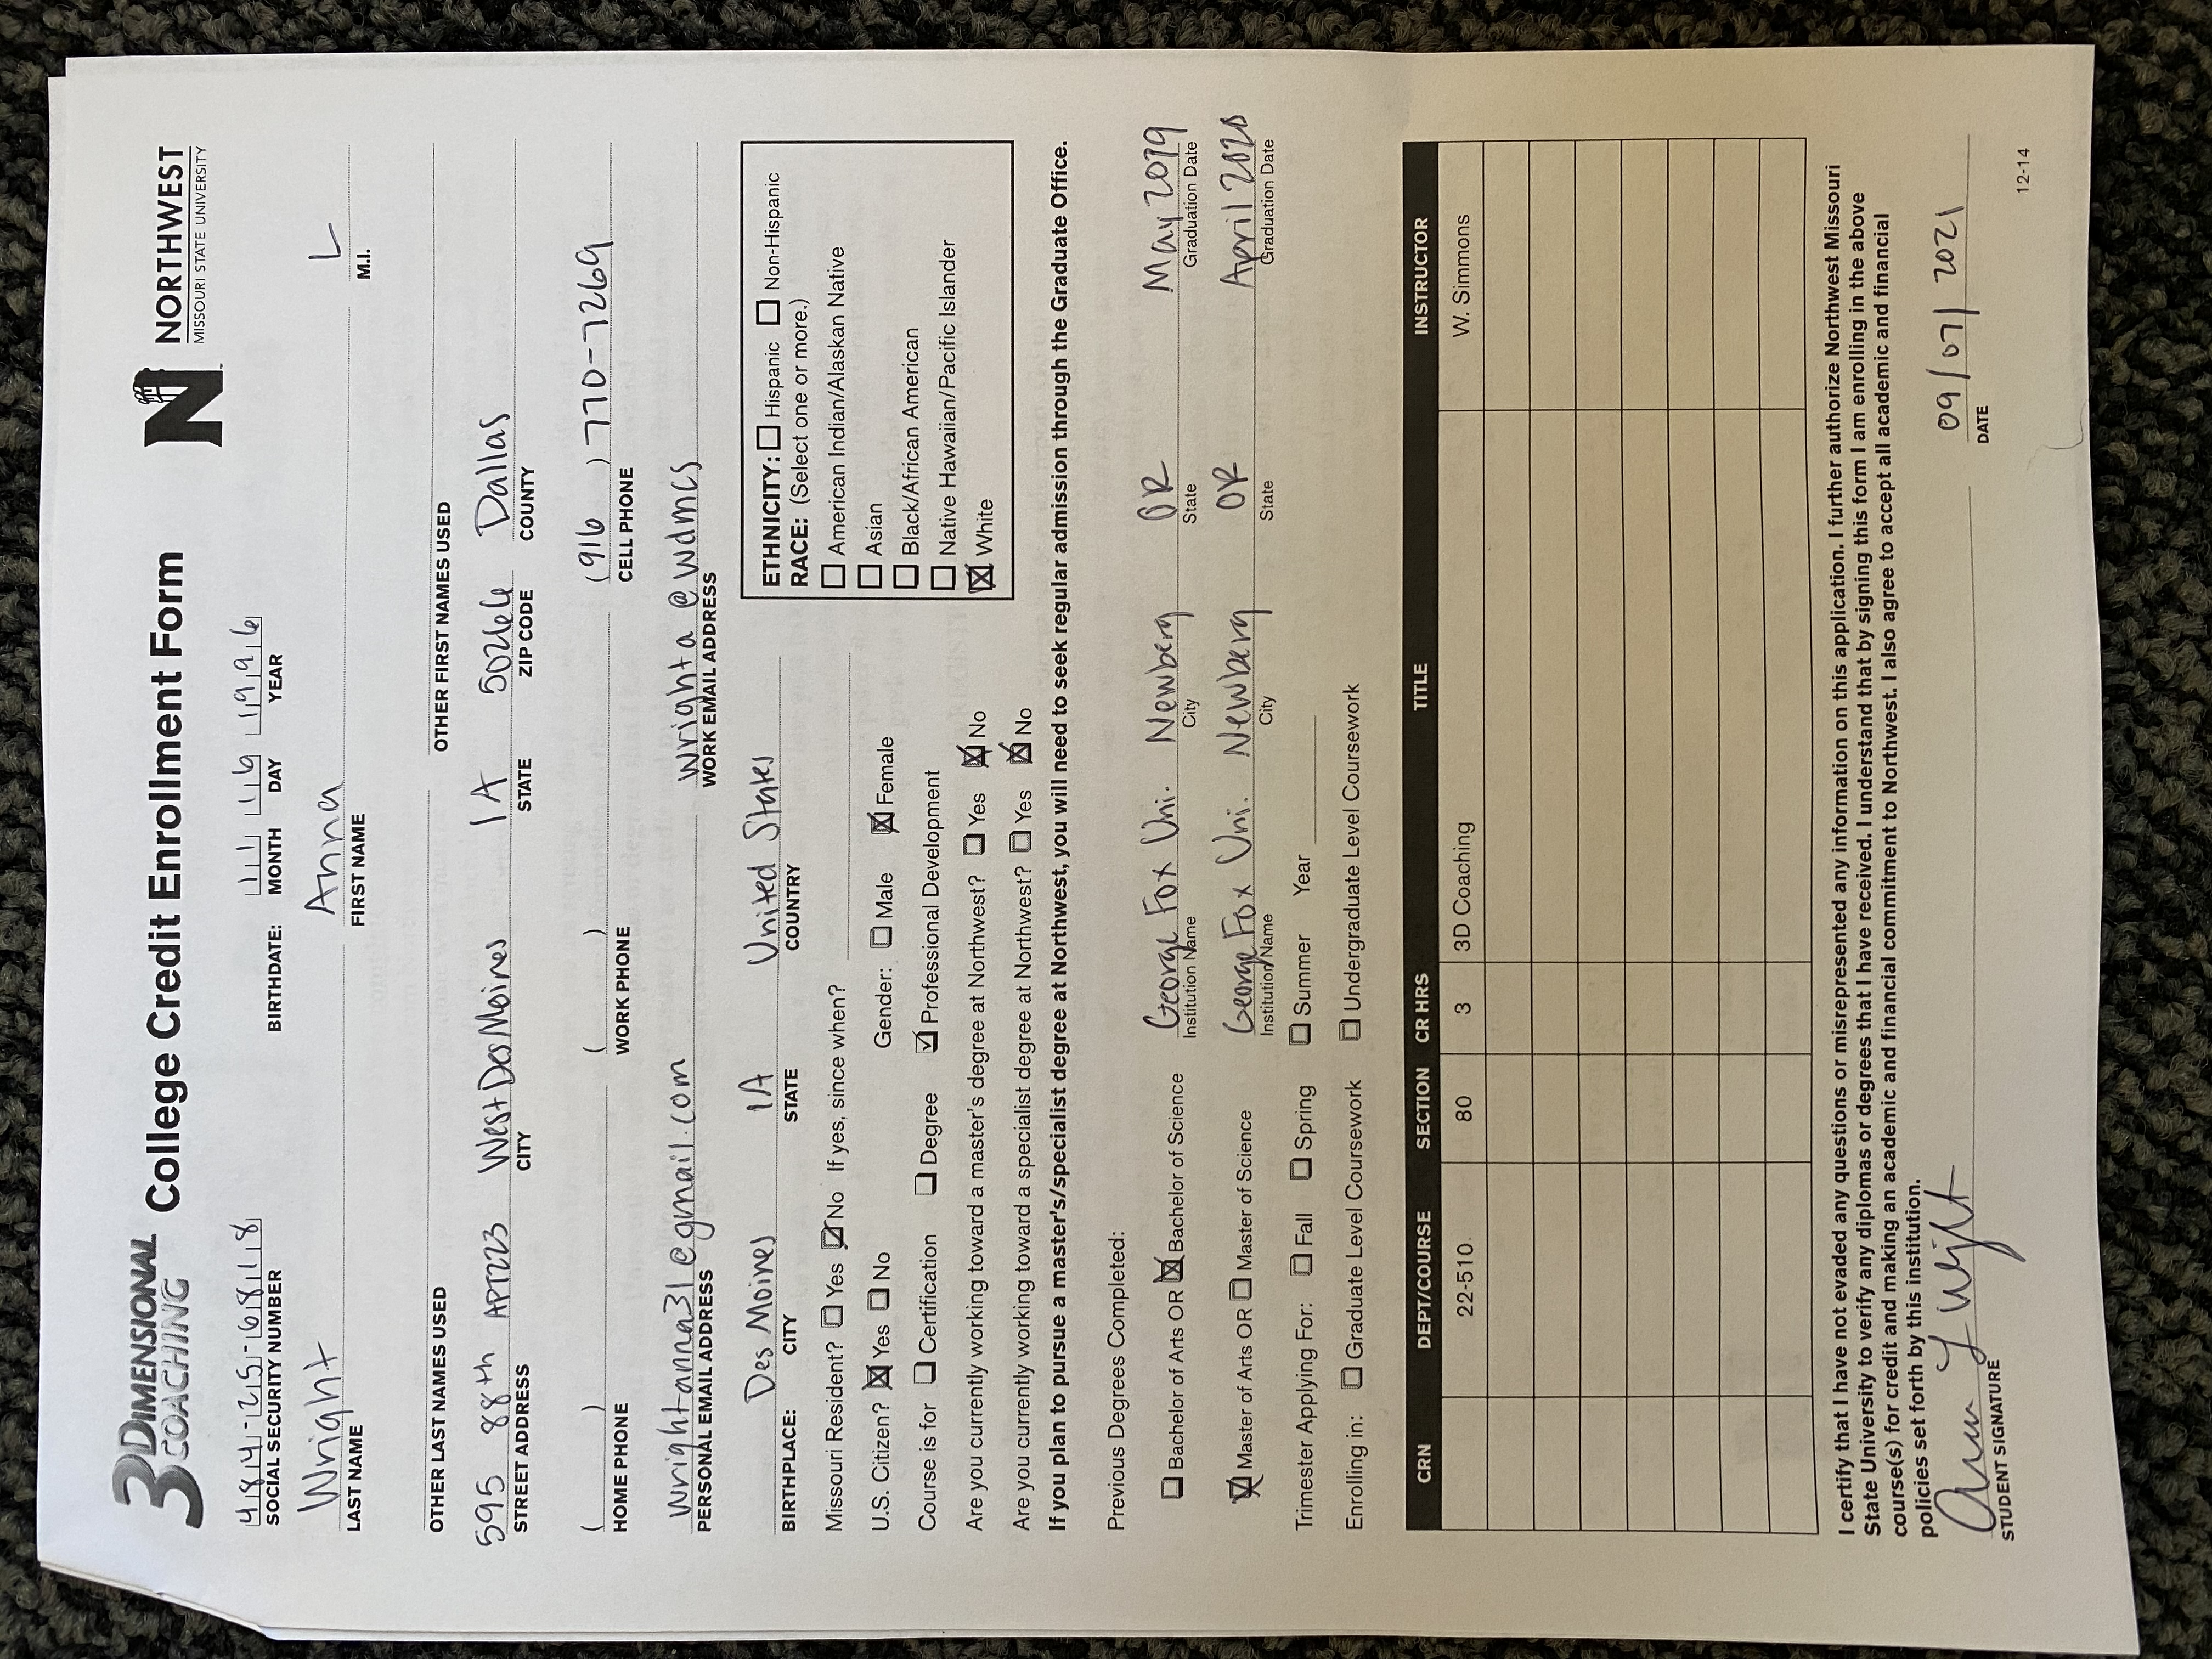 3 DIMENSIONAL COACHING College Credit Enrollment Form N NORTHWEST
MISSOURI STATE UNIVERSITY
484-25-6818 11 16 1996
SOCIAL SECURITY NUMBER BIRTHDATE: MONTH DAY YEAR
Wright Anna L
LAST NAME FIRST NAME M.I.
OTHER LAST NAMES USED OTHER FIRST NAMES USED
595 88th APT223 West Des Moines IA 50266 Dallas
STREET ADDRESS CITY STATE ZIP CODE COUNTY
( ) ( ) (916 ) 770-7269
HOME PHONE WORK PHONE CELL PHONE
wrightanna31@gmail.com wrighta@wdmcs
PERSONAL EMAIL ADDRESS WORK EMAIL ADDRESS
Des Moines IA United States
BIRTHPLACE: CITY STATE COUNTRY
ETHNICITY: Hispanic Non-Hispanic
RACE: (Select one or more.)
American Indian/Alaskan Native
Asian
Black/African American
Native Hawaiian/Pacific Islander
White
Missouri Resident? Yes No If yes, since when?
U.S. Citizen? Yes No Gender: Male Female
Course is for Certification Degree Professional Development
Are you currently working toward a master's degree at Northwest? Yes No
Are you currently working toward a specialist degree at Northwest? Yes No
If you plan to pursue a master's/specialist degree at Northwest, you will need to seek regular admission through the Graduate Office.
Previous Degrees Completed:
Bachelor of Arts OR Bachelor of Science George Fox Uni. Newberg OR May 2019
Institution Name City State Graduation Date
Master of Arts OR Master of Science George Fox Uni. Newberg OR April 2020
Institution Name City State Graduation Date
Trimester Applying For: Fall Spring Summer Year
Enrolling in: Graduate Level Coursework Undergraduate Level Coursework
CRN DEPT/COURSE SECTION CR HRS TITLE INSTRUCTOR
22-510 80 3 3D Coaching W. Simmons
I certify that I have not evaded any questions or misrepresented any information on this application. I further authorize Northwest Missouri
State University to verify any diplomas or degrees that I have received. I understand that by signing this form I am enrolling in the above
course(s) for credit and making an academic and financial commitment to Northwest. I also agree to accept all academic and financial
policies set forth by this institution.
Anna L Wright 09/07/2021
STUDENT SIGNATURE DATE
12-14